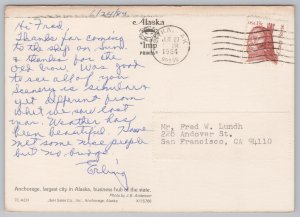 6/24/84
Hi Fred,
Thanks for coming
to the ship on Sun.
& thanks for the
Was good
to see all of you
Scenery is similar
yet different from
what we saw last
yr. Weather has
been beautiful. Have
met some nice people
but no bridge
Erling
Alaska
JUN 27
1984
USA 13c
Mr. Fred W. Lundh
280 Andover St.
San Francisco, CA 94110
Anchorage, largest city in Alaska, business hub of the state.
Photo by J.B. Anderson
J&H Sales Co., Inc., Anchorage, Alaska